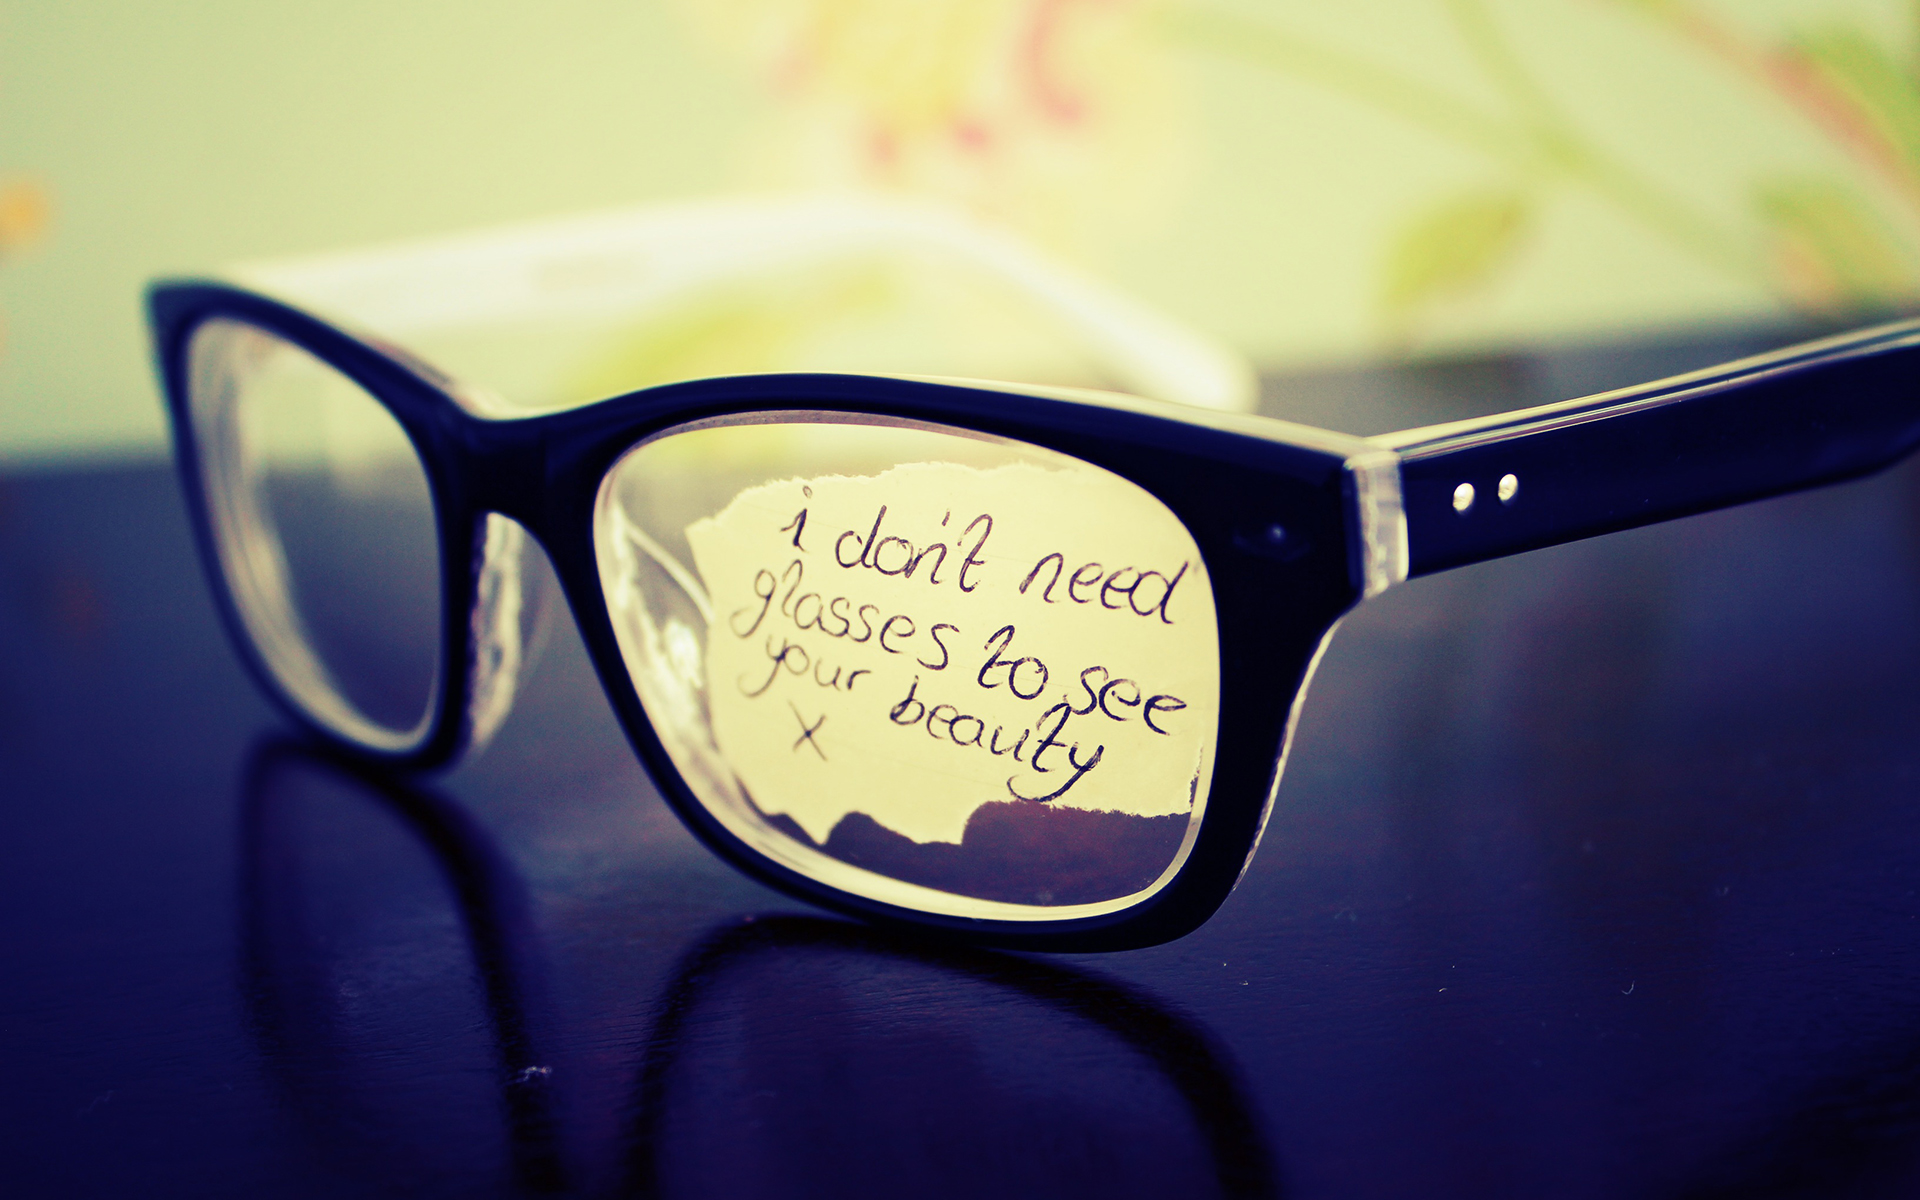 i don't need
glasses to see
your beauty
x